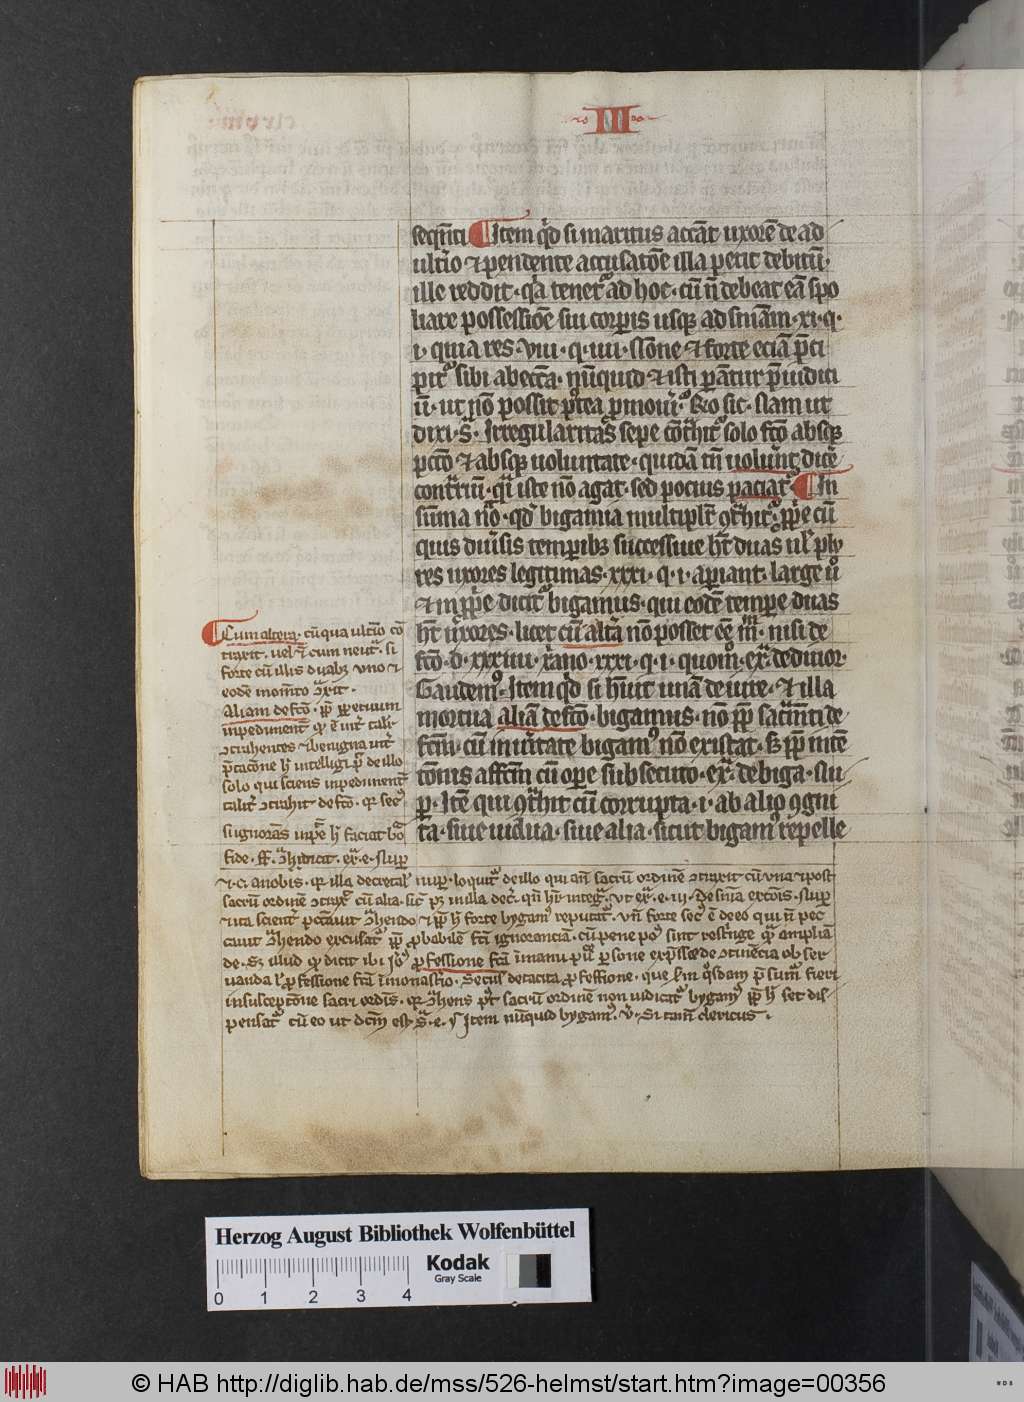 III
seqn̄ti ¶ Item qd̓ si maritus accāt uxorē de ad
ult̓io ⁊ pendente accusatōe illa petit debitū·
ille reddit· q̓a tenet᷑ ad hoc· cū n̄ debeat eā spo
liare possessiōe sui corp̄is usq̧ ad sn̄iam· xi· q·
i· quia res· viii· q· iiii· ·⁊ forte eciā
sibi nūquid ⁊ isti
ū· ut nō possit p̓tea pmoū̓i· sic· Nam ut
dixi· s̓· Irregularitas sepe cōt̓hit᷑ solo fc̄o absq̧
pccō ⁊ absq̧ uoluntate· quidā tn̄ dicē
cont̓riū· q̓ iste nō agat· sed pocius paciat᷑ ¶ In
sūma nō· qd̓ bigamia multiplr̄ ꝯt̓hit᷑· pp̄e cū
quis diu̓sis tempīb; successiue hēt duas ul̓ ply
res uxores legitimas· xxxi· q· i· apiant· large u̓o
⁊ inpp̄e dicit᷑ bigamus· qui eodē tempe duas
hēt uxores· licet cū alt̓a nō posset eē m̓m̓· nisi de
fc̄o· d· xxxiiii· x̓ano· xxxi· q· i· quom̓o· ex̄· de diuor·
Gaudem᷒· Item qd̓ si hūit unā de iure· ⁊ illa
mortua aliā de fc̄o· bigamus· nō pp̄ sac̓m̄ti de
fc̄m· cū in u̓itate bigam᷒ nō existat· s̄ pp̄ intē
cōnis affcm̄ cū ope subsecuto· ex̄· de biga· Nu
p̱· Itē qui ꝯt̓hit cū corrupta· i· ab alio ꝯgni
ta· siue uidua· siue alia· sicut bigam᷒ repelle
¶ Cum altera· cū qua ult̓io cō
t̓axit· uel ⁊ cum neut᷑· si
forte cū illis duab; uno ⁊
eodē momēto ꝯt̓xit·
Aliam de fc̄o· pp̄ ppetuum
inpedimentū qd̓ ē int̓ tali·
ꝯt̓ahentes ⁊ benigna int̓
p̄tacōne h̄ intelligi pt̄ de illo
solo qui sciens inpedimentū
talit̓ ꝯt̓ahit de fc̄o· q̄ sec᷒
si ignorās inpe h̄ faciat bōa
fide· ff· ex̄· e· Nup
⁊· c· a nobis· q̄ illa decretal̓ nup· loquit᷑ de illo qui an̄ sacrū ordinē ꝯt̓axit cū una ⁊ post
sacrū ordinē ꝯt̓ax̄ cū alia· sic̄ p; in illa dec̓· qn̄ h̄r integ̓· ut ex̄· e· iii· De sn̄ia excōis· Nup
⁊ ita scient᷑ pccauit ꝯt̓hendo ⁊ pp̄ h̄ forte bygam᷒ reputat᷑· un̄ forte sec᷒ ē de eo qui n̄ pec
cauit ꝯt̓hendo excusat᷑ pp̄ pbabilē fc̄i ignoranciā· cū pene poc᷒ sint rest̓nge q̓ amplia
de· S; illud qd̓ dicit ibi Io᷒ pfessione fc̄ā ī manu p̓uil p̱sone exp̄ssā de ꝯtinēcia obser
uanda ul̓ pfessione fc̄ā ī monast̓io· Secus de tacita pfessione· que l̓m q̓sdam p̄ sum̓ fieri
in susceptōne sacri ordīs· q̄ ꝯt̓hens p̄t sacrū ordinē non iudicat᷑ bygam᷒ pp̄ h̄ set dis
pensat᷑ cū eo ut dc̄m est s̓· e· § Item nūquid bygam᷒· v̓· Si tam̄ clericus·
Herzog August Bibliothek Wolfenbüttel
Kodak
Gray Scale
0 1 2 3 4
© HAB http://diglib.hab.de/mss/526-helmst/start.htm?image=00356